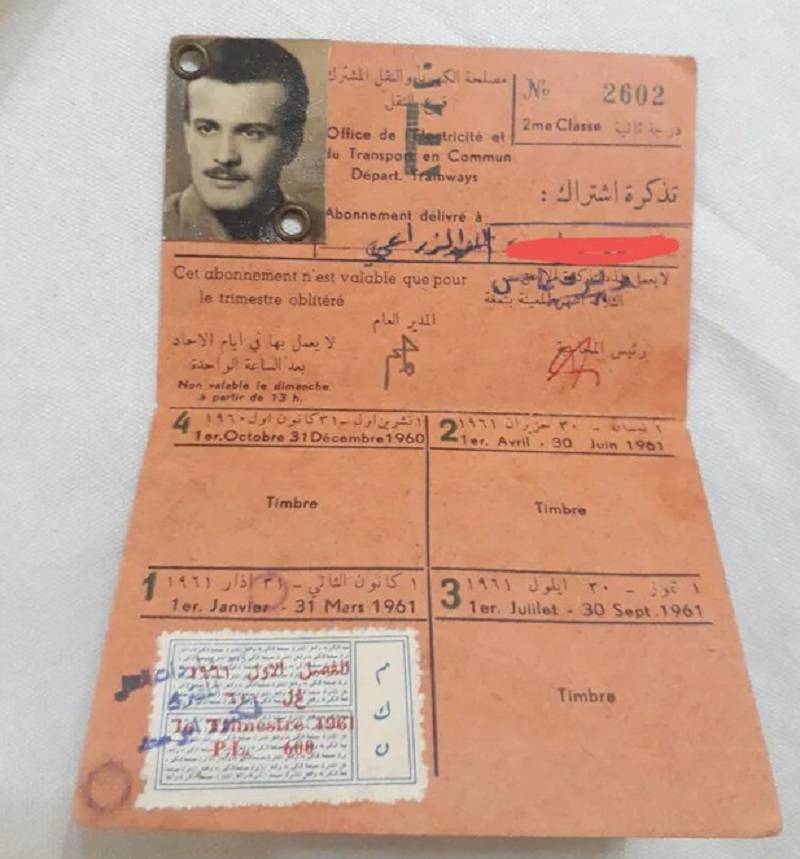 مصلحة الكهرباء والنقل المشترك
فرع النقل
Office de l'Electricité et
du Transport en Commun
Départ. Tramways
No 2602
2me Classe درجة ثانية
تذكرة اشتراك :
Abonnement délivré à
المعهد الزراعي
Cet abonnement n'est valable que pour
le trimestre oblitéré
لا يعمل بهذه التذكرة إلا عن
المعينة بتمغة
المدير العام
رئيس
لا يعمل بها في أيام الاحاد
بعد الساعة الواحدة
Non valable le dimanche
à partir de 13 h.
4 ١ تشرين اول - ٣١ كانون اول ١٩٦٠
1er. Octobre 31 Décembre 1960
Timbre
2 ١ نيسان - ٣٠ حزيران ١٩٦١
1er. Avril - 30 Juin 1961
Timbre
1 ١ كانون الثاني - ٣١ اذار ١٩٦١
1er. Janvier - 31 Mars 1961
الفصل الاول ١٩٦١
غ.ل ٦٠٠
1er Trimestre 1961
P.L. 600
م
ك
ن
3 ١ تموز - ٣٠ ايلول ١٩٦١
1er. Juillet - 30 Sept. 1961
Timbre